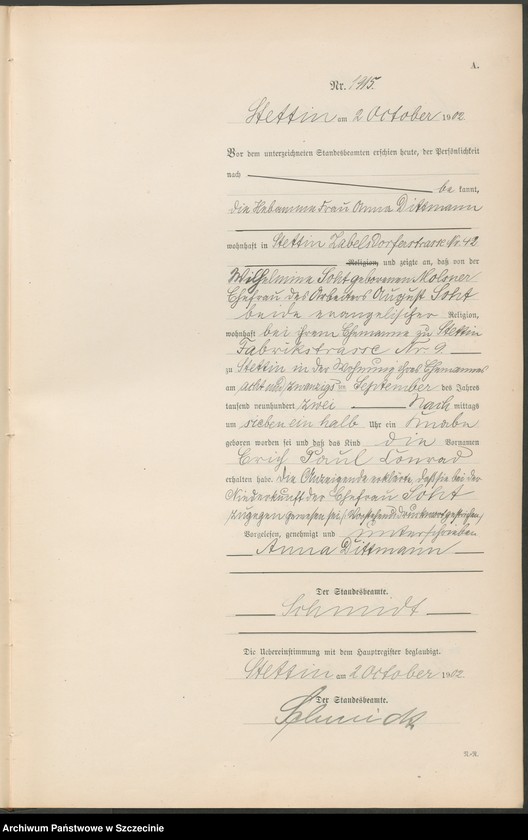 A.
Nr. 1915.
Stettin am 2 October 1902.
Vor dem unterzeichneten Standesbeamten erschien heute, der Persönlichkeit
nach
be kannt,
die Hebamme Frau Anna Dittmann
wohnhaft in Stettin Zabelsdorferstrasse Nr. 42
Religion, und zeigte an, daß von der
Wilhelmine geborenen
Ehefrau des Arbeiters August
beide evangelischer Religion,
wohnhaft bei ihrem Ehemanne zu Stettin
Fabrikstrasse Nr. 9
zu Stettin in der Wohnung ihres Ehemannes
am acht und zwanzigs ten September des Jahres
tausend neunhundert zwei Nach mittags
um sieben ein halb Uhr ein Knabe
geboren worden sei und daß das Kind die Vornamen
Erich Paul Conrad
erhalten habe. Die Anzeigende erklärte, daß sie bei der
Niederkunft der Ehefrau
zugegen gewesen sei. (Vorstehend Druckwort gestrichen)
Vorgelesen, genehmigt und unterschrieben
Anna Dittmann
Der Standesbeamte.
Schmidt
Die Uebereinstimmung mit dem Hauptregister beglaubigt.
Stettin am 2 October 1902.
Der Standesbeamte.
Schmidt
Archiwum Państwowe w Szczecinie